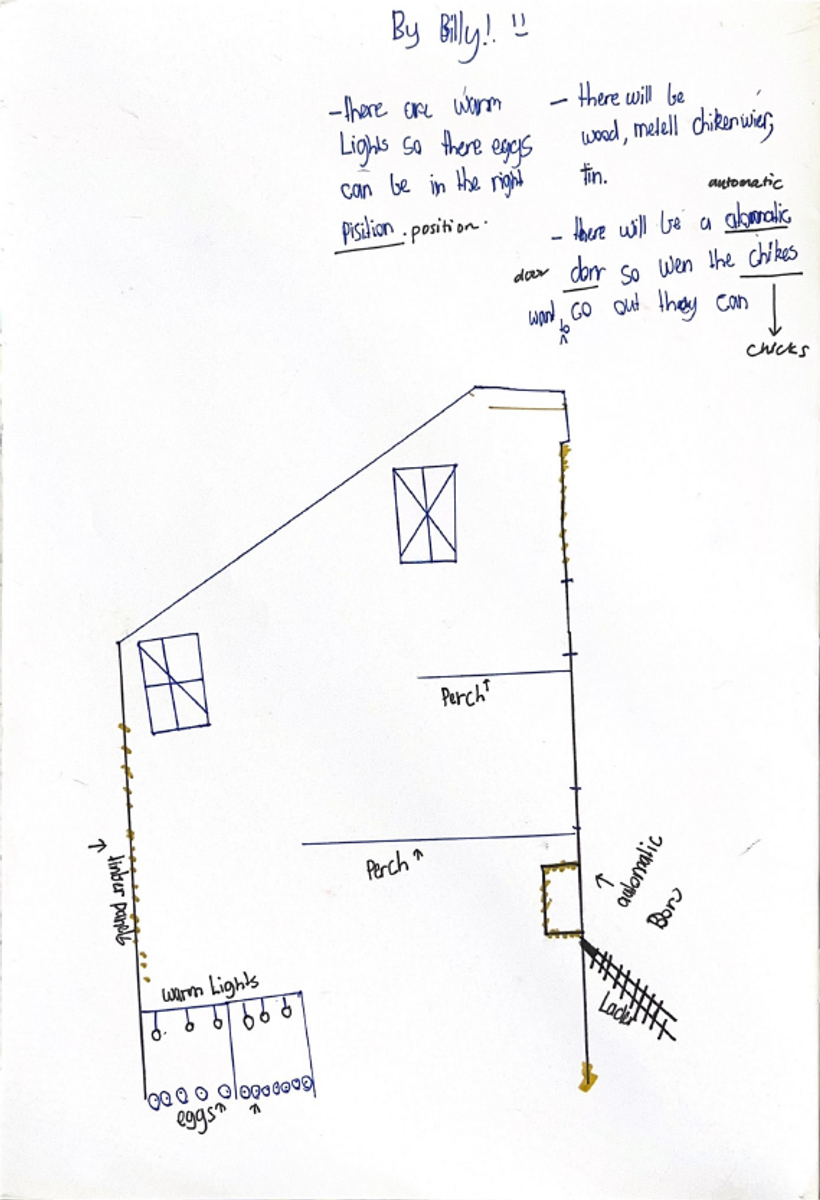 By Billy!! !!
-there are warm
Lights so there eggs
can be in the right
Pisition . position.
- there will be
wood, metell chikenwier,
tin.
automatic
- there will be a atomatic
door dorr so wen the chikes
want to GO out they can
chicks
Perch
Perch
timber panels
automatic
Doro
Lader
warm Lights
eggs